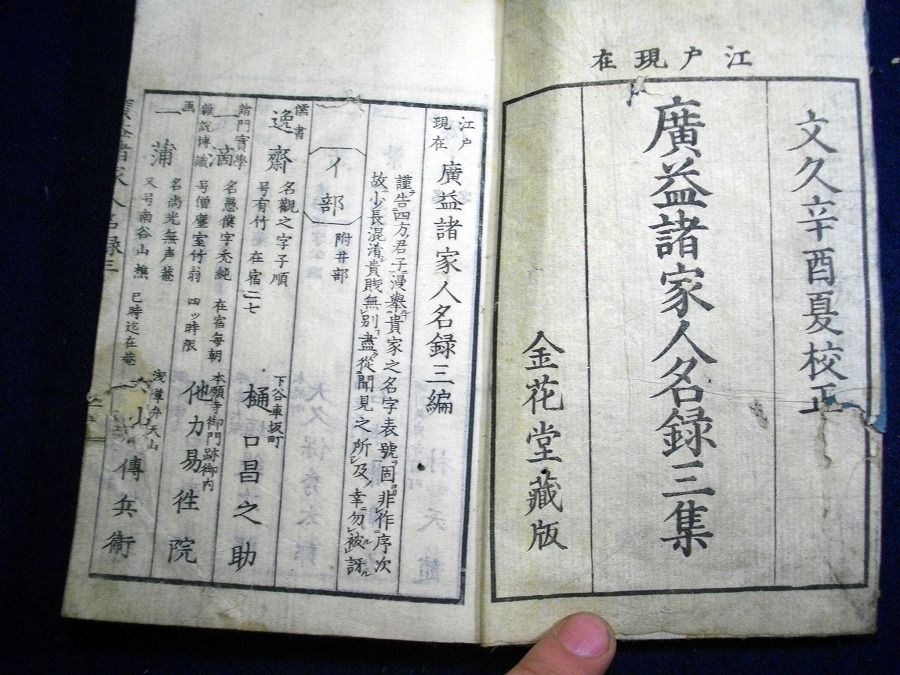 江戸現在
文久辛酉夏校正
廣益諸家人名録三集
金花堂藏版
江戸現在
廣益諸家人名録三編
謹告四方君子漫擧貴家之名字表號固非作序次
故少長混淆貴賎無別盡從聞見之所及幸勿被訝
イ部
附井部
儒書
逸齋
名觀之字子順
号有竹 在宿二七
下谷車坂町
樋口昌之助
名愚僕字禿純 在宿毎朝
号僧塵室竹翁 四ッ時限
本願寺御門跡御内
他力易徃院
画
一蒲
名尚光無声菴
又号南谷山樵 巳時迄在菴
浅草弁天山
大山傳兵衛
廣益諸家人名録三